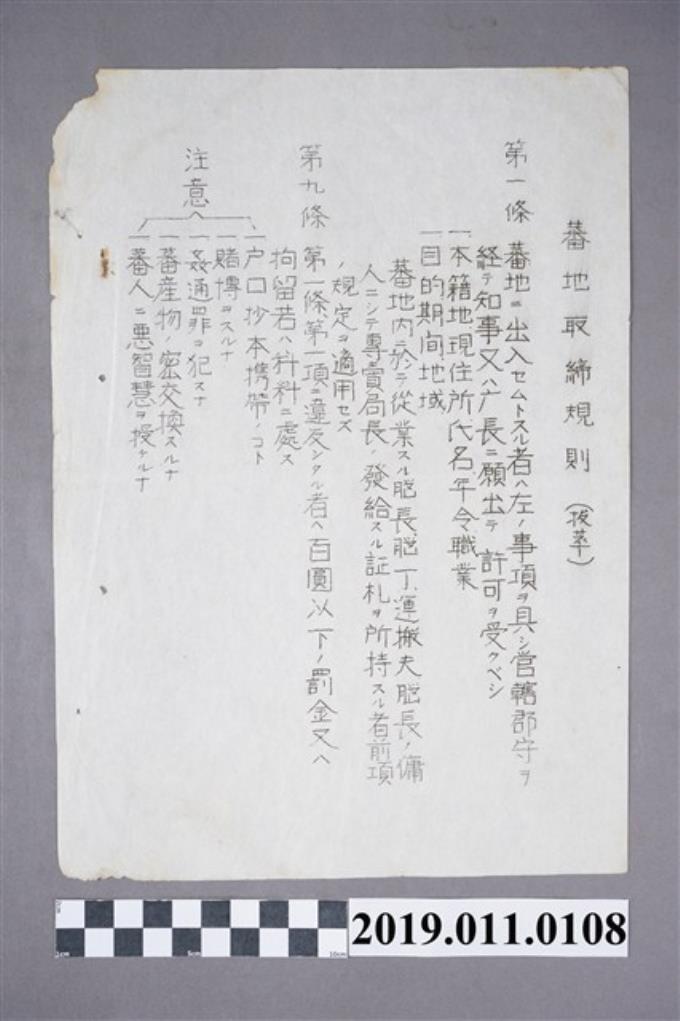 蕃地取締規則(抜萃)
第一條 蕃地ニ出入セムトスル者ハ左ノ事項ヲ具シ管轄郡守ヲ
経テ知事又ハ庁長ニ願出テ許可ヲ受クベシ
一本籍地、現住所氏名年令職業
一目的期间地域
蕃地内ニ於テ從業スル脳長、脳丁、運搬夫脳長ノ傭
人ニシテ專賣局長ノ發給スル証札ヲ所持スル者前項
ノ規定ヲ適用セズ
第九條 第一條、第一項ニ違反シタル者ハ百圓以下ノ罰金又ハ
拘留若ハ科料ニ處ス
注意
一戸口抄本携帶ノコト
一賭博ヲスルナ
一姦通罪ヲ犯スナ
一蕃産物ノ密交換スルナ
一蕃人ニ悪智慧ヲ授ケルナ
2019.011.0108